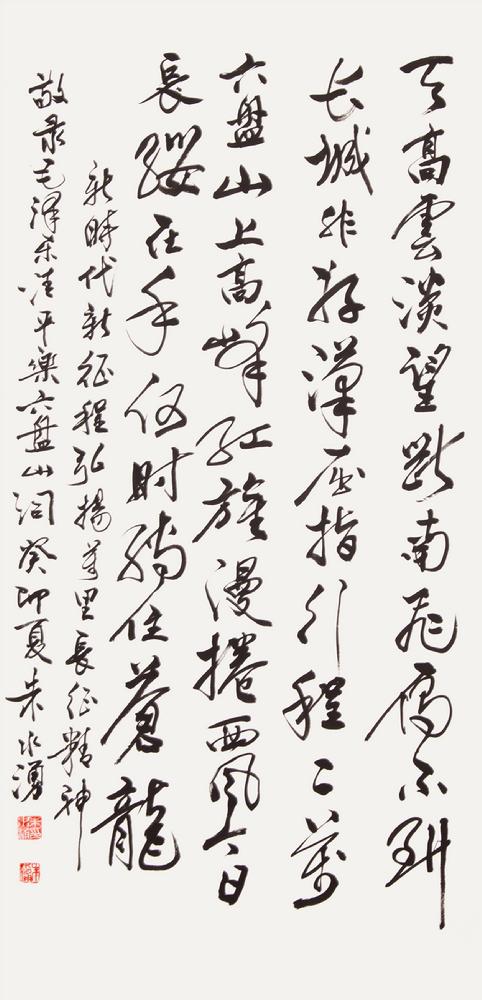 天高雲淡望斷南飛雁不到
长城非好漢屈指行程二萬
六盤山上高峰紅旗漫捲西風今日
長纓在手何時縛住蒼龍
新时代新征程弘揚萬里長征精神
敬录毛泽东清平樂六盘山词癸卯夏朱水湧